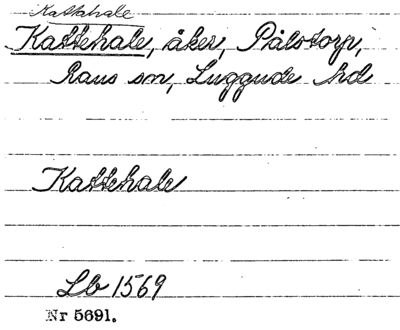 Kattahale
Kattehale, åker, Pålstorp,
Raus sn, Luggude hd
Kattehale
Lb 1569
Nr 5691.